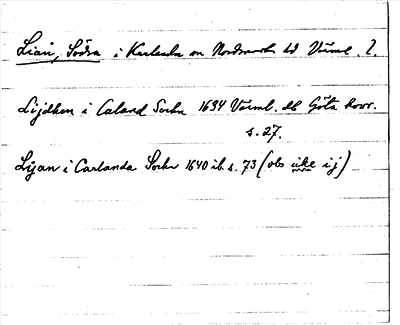 Lian, Södra i Karlanda sn Nordmarks hd Värml. l.
Lijdhen i Caland Sochn 1634 Värml. dl Göta hovr.
s. 27.
Lijan i Carlanda Sochn 1640 ib. s. 73 (obs icke ij)